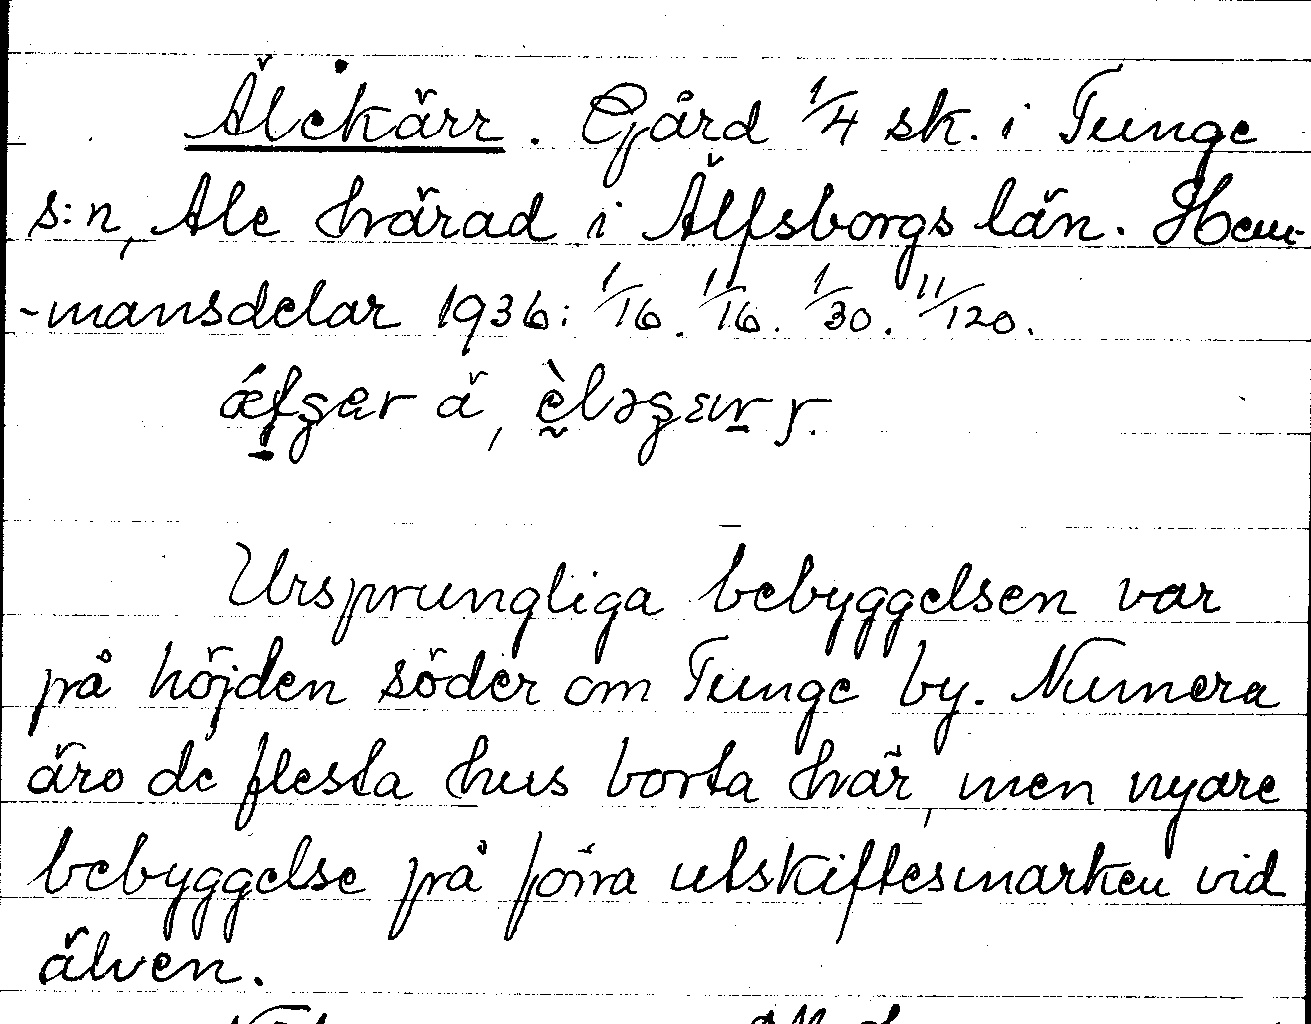 Älekärr. Gård 1/4 sk. i Tunge
s:n, Ale härad i Älfsborgs län. Hem-
-mansdelar 1936: 1/16. 11/16. 1/30. 11/120.
ä,
Ursprungliga bebyggelsen var
på höjden söder om Tunge by. Numera
äro de flesta hus borta här, men nyare
bebyggelse på förra utskiftesmarken vid
älven.